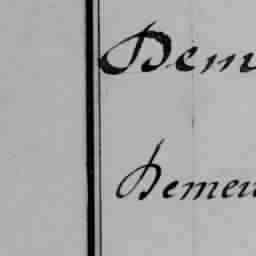 Dem
Demeu